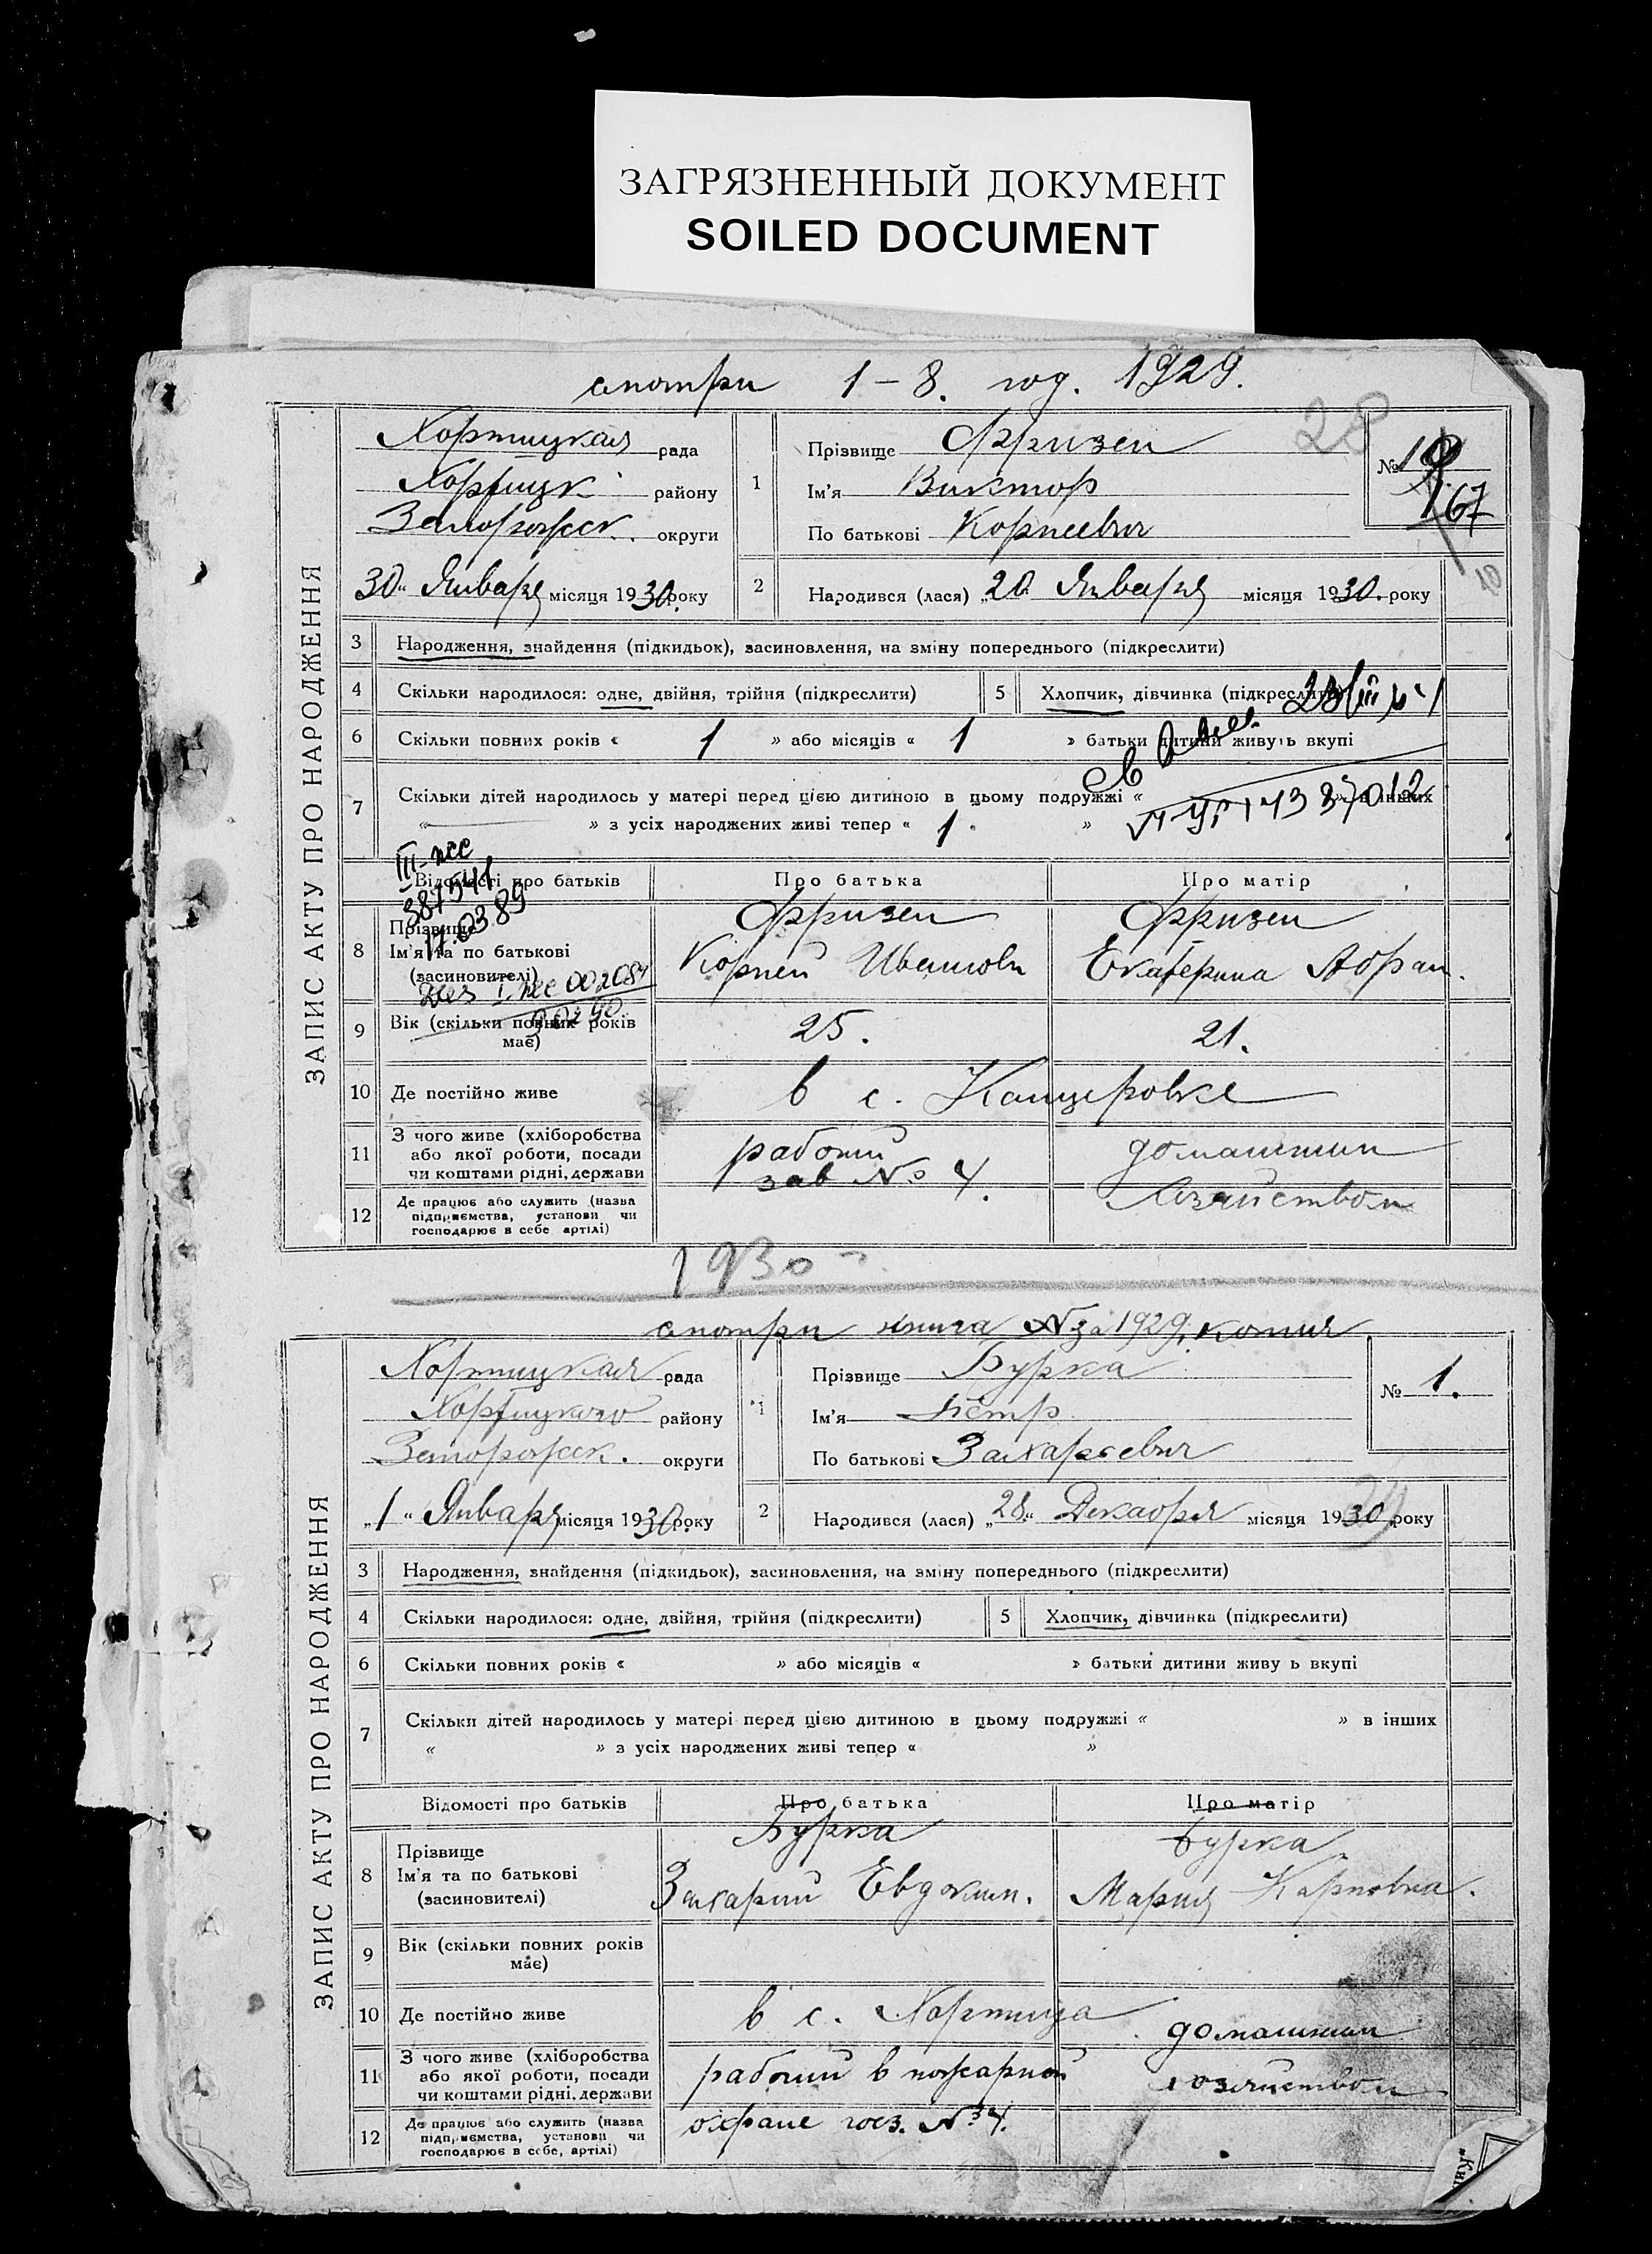 ЗАГРЯЗНЕННЫЙ ДОКУМЕНТ
SOILED DOCUMENT
смотри 1 – 8. год. 1929.
28
ЗАПИС АКТУ ПРО НАРОДЖЕННЯ
Хортицкая рада
Хортицк району
Запорожск. округи
1
Прізвище Фризен
Ім'я Виктор
По батькові Корнеевич
№
67
10
30 " Января місяця 1930. року
2
Народився (лася) „20 Января місяця 1930. року
3 Народження, знайдення (підкидьок), засиновлення, на зміну попереднього (підкреслити)
4 Скільки народилося: одне, двійня, трійня (підкреслити)
5 Хлопчик, дівчинка (підкреслити)
6 Скільки повних років « 1 » або місяців « 1 » батьки дитини живуть вкупі
7 Скільки дітей народилось у матері перед цією дитиною в цьому подружжі « » в інших
« » з усіх народжених живі тепер « 1. »
III-псс
387541
17.03 89
Відомості про батьків
Про батька
Про матір
8 Прізвище
Ім'я та по батькові
(засновителі)
Фризен
Корней Иванов
Фризен
Екатерина Абрам.
9 Вік (скільки повних років має)
25.
21.
10 Де постійно живе
в с. Канцеровке
11 З чого живе (хліборобства
або якої роботи, посади
чи коштами рідні, держави
рабочий
зав № 4.
домашним
хозяйством
12 Де працює або служить (назва
підприємства, установи чи
господарює в себе артілі)
1930
смотри книга № за 1929, копия
ЗАПИС АКТУ ПРО НАРОДЖЕННЯ
Хортицкая рада
Хортицкого району
Запорожск. округи
1
Прізвище Бурка
Ім'я Пётр
По батькові Захарьевич
№ 1.
„1" Января місяця 1930. року
2
Народився (лася) „28" Декабря місяця 1930 року
3 Народження, знайдення (підкидьок), засиновлення, на зміну попереднього (підкреслити)
4 Скільки народилося: одне, двійня, трійня (підкреслити)
5 Хлопчик, дівчинка (підкреслити)
6 Скільки повних років « » або місяців « » батьки дитини живу ь вкупі
7 Скільки дітей народилось у матері перед цією дитиною в цьому подружжі « » в інших
« » з усіх народжених живі тепер « »
Відомості про батьків
Про батька
Про матір
8 Прізвище
Ім'я та по батькові
(засиновителі)
Бурка
Захарий Евдоким.
Бурка
Мария Карповна.
9 Вік (скільки повних років має)
10 Де постійно живе
в с. Хортица
11 З чого живе (хліборобства
або якої роботи, посади
чи коштами рідні, держави
рабочий в пожарной
домашним
хозяйством
12 Де працює або служить (назва
підприємства, установи чи
господарює в себе, артілі)
охране гос. № 4.